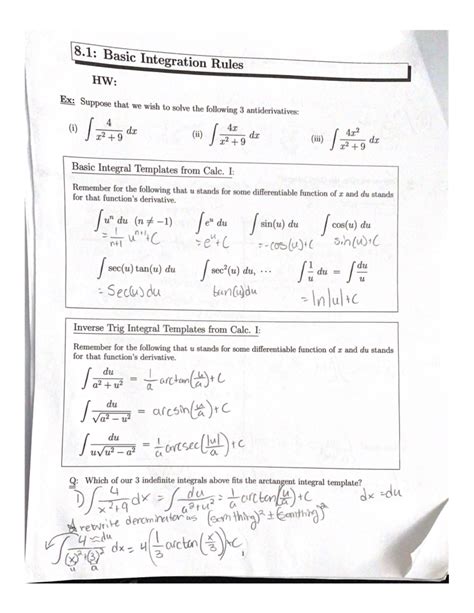 8.1: Basic Integration Rules
HW:
Ex: Suppose that we wish to solve the following 3 antiderivatives:
(i) ∫ 4/(x² + 9) dx (ii) ∫ 4x/(x² + 9) dx (iii) ∫ 4x²/(x² + 9) dx
Basic Integral Templates from Calc. I:
Remember for the following that u stands for some differentiable function of x and du stands
for that function's derivative.
∫ uⁿ du (n ≠ −1) ∫ eᵘ du ∫ sin(u) du ∫ cos(u) du
= 1/(n+1) uⁿ⁺¹ + C = eᵘ + C = -cos(u) + C sin(u) + C
∫ sec(u) tan(u) du ∫ sec²(u) du, ⋯ ∫ 1/u du = ∫ du/u
= Sec(u) du tan(u) du = ln|u| + C
Inverse Trig Integral Templates from Calc. I:
Remember for the following that u stands for some differentiable function of x and du stands
for that function's derivative.
∫ du/(a² + u²) = 1/a arctan(u/a) + C
∫ du/√(a² − u²) = arcsin(u/a) + C
∫ du/(u√(u² − a²)) = 1/a arcsec(|u|/a) + C
Q: Which of our 3 indefinite integrals above fits the arctangent integral template?
1) ∫ 4/(x²+9) dx = ∫ du/(a²+u²) = 1/a arcten(u/a) + C dx = du
rewrite denominator as (somthing)² ± (somthing)²
4 du
∫ 4/((x)²+(3)²) dx = 4(1/3 arctan(x/3)) + C,
u a